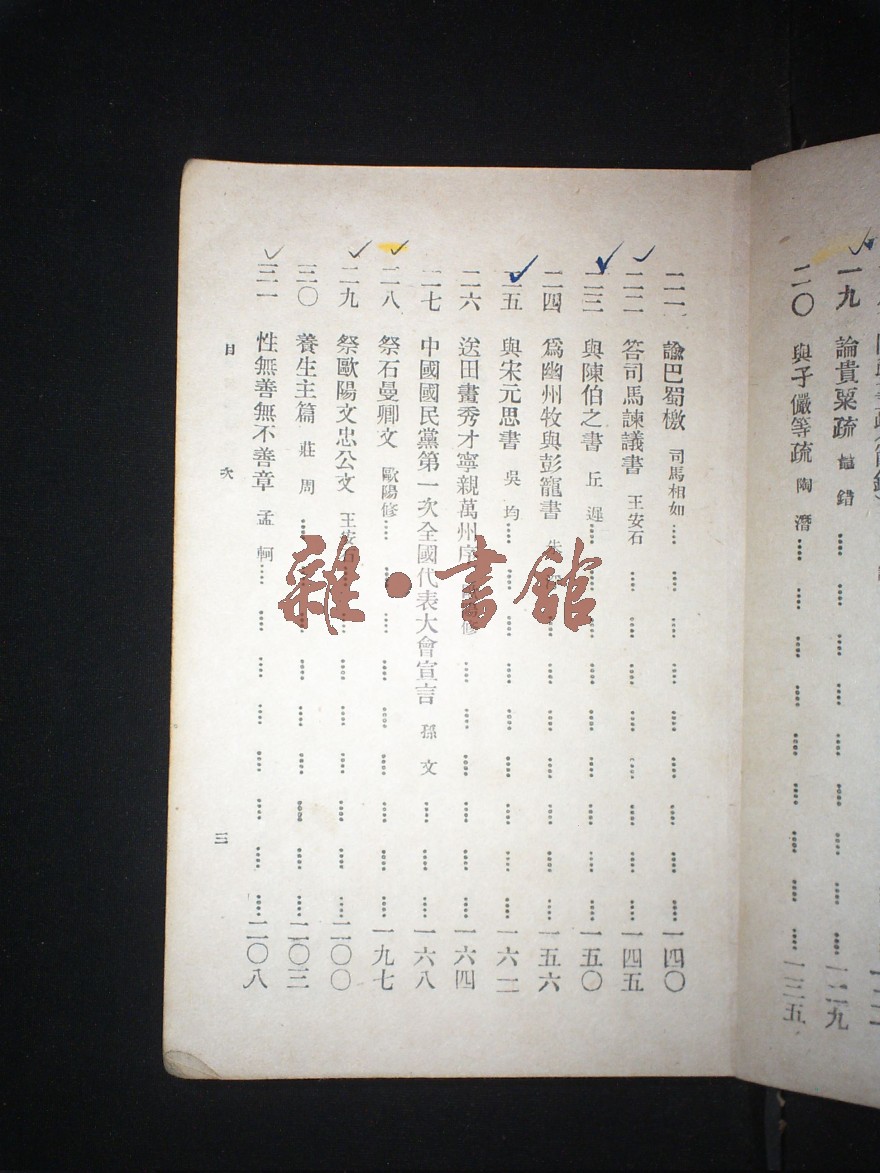 一九 論貴粟疏 鼂錯 一二九
二〇 與子儼等疏 陶潛 一三五
二一 諭巴蜀檄 司馬相如 一四〇
二二 答司馬諫議書 王安石 一四五
二三 與陳伯之書 丘遲 一五〇
二四 爲幽州牧與彭寵書 朱 一五六
二五 與宋元思書 吳均 一六二
二六 送田畫秀才寧親萬州序 修 一六四
二七 中國國民黨第一次全國代表大會宣言 孫文 一六八
二八 祭石曼卿文 歐陽修 一九七
二九 祭歐陽文忠公文 王安石 二〇〇
三〇 養生主篇 莊周 二〇三
三一 性無善無不善章 孟軻 二〇八
目次
三
雜·書館